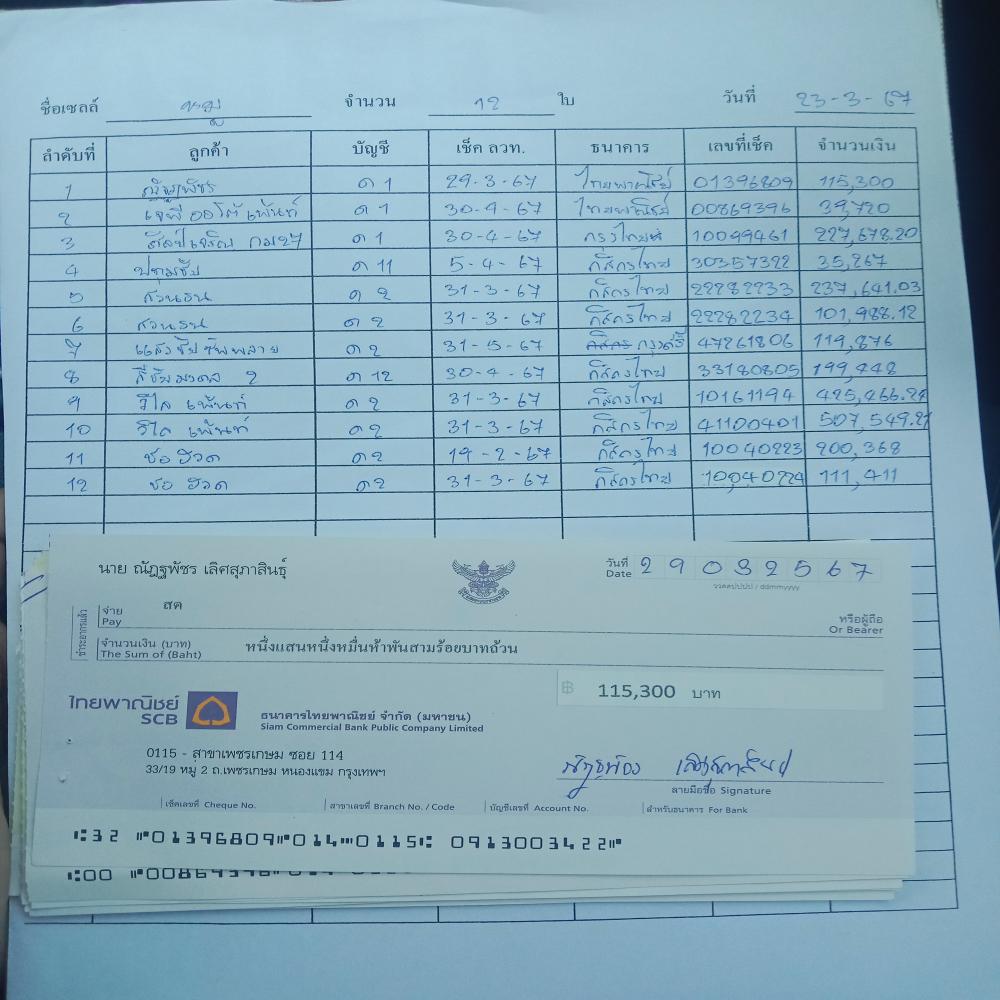 ชื่อเซลล์ หมู จำนวน 12 ใบ วันที่ 23-3-67
ลำดับที่ ลูกค้า บัญชี เช็ค ลวท. ธนาคาร เลขที่เช็ค จำนวนเงิน
1 ณัฏฐพัชร ด 1 29-3-67 ไทยพาณิชย์ 01396809 115,300
2 เจพี ออโต้ เพ้นท์ ด 1 30-4-67 ไทยพาณิชย์ 00869396 39,720
3 ศิลป์เจริญ กม27 ด 1 30-4-67 กรุงไทย 10099461 227,678.20
4 ปทุมชัย ด 11 5-4-67 กสิกรไทย 30357322 35,267
5 สวนธน ด 2 31-3-67 กสิกรไทย 22282233 237,641.03
6 สวนธน ด 2 31-3-67 กสิกรไทย 22282234 101,988.12
7 แสงชัย ด 2 31-5-67 กสิกร กรุงศรี 47261806 119,876
8 ลี้ชัยมงคล 2 ด 12 30-4-67 กสิกรไทย 33180805 199,448
9 วีไล เพ้นท์ ด 2 31-3-67 กสิกรไทย 10161194
10 วีไล เพ้นท์ ด 2 31-3-67 กสิกรไทย 41100401
11 ช่อ ฮวด ด 2 19-2-67 กสิกรไทย 10040223 200,368
12 ช่อ ฮวด ด 2 31-3-67 กสิกรไทย 10040224 111,411
นาย ณัฏฐพัชร เลิศสุภาสินธุ์ วันที่ Date 29032567
ววดดปปปป / ddmmyyyy
จ่าย Pay สด หรือผู้ถือ Or Bearer
จำนวนเงิน (บาท) The Sum of (Baht) หนึ่งแสนหนึ่งหมื่นห้าพันสามร้อยบาทถ้วน
฿ 115,300 บาท
ไทยพาณิชย์ SCB
ธนาคารไทยพาณิชย์ จำกัด (มหาชน)
Siam Commercial Bank Public Company Limited
0115 - สาขาเพชรเกษม ซอย 114
33/19 หมู่ 2 ถ.เพชรเกษม หนองแขม กรุงเทพฯ
ลายมือชื่อ Signature
เช็คเลขที่ Cheque No. สาขาเลขที่ Branch No. / Code บัญชีเลขที่ Account No. สำหรับธนาคาร For Bank
⑆32 ⑈01396809⑈014⑉0115⑆ 0913003422⑈